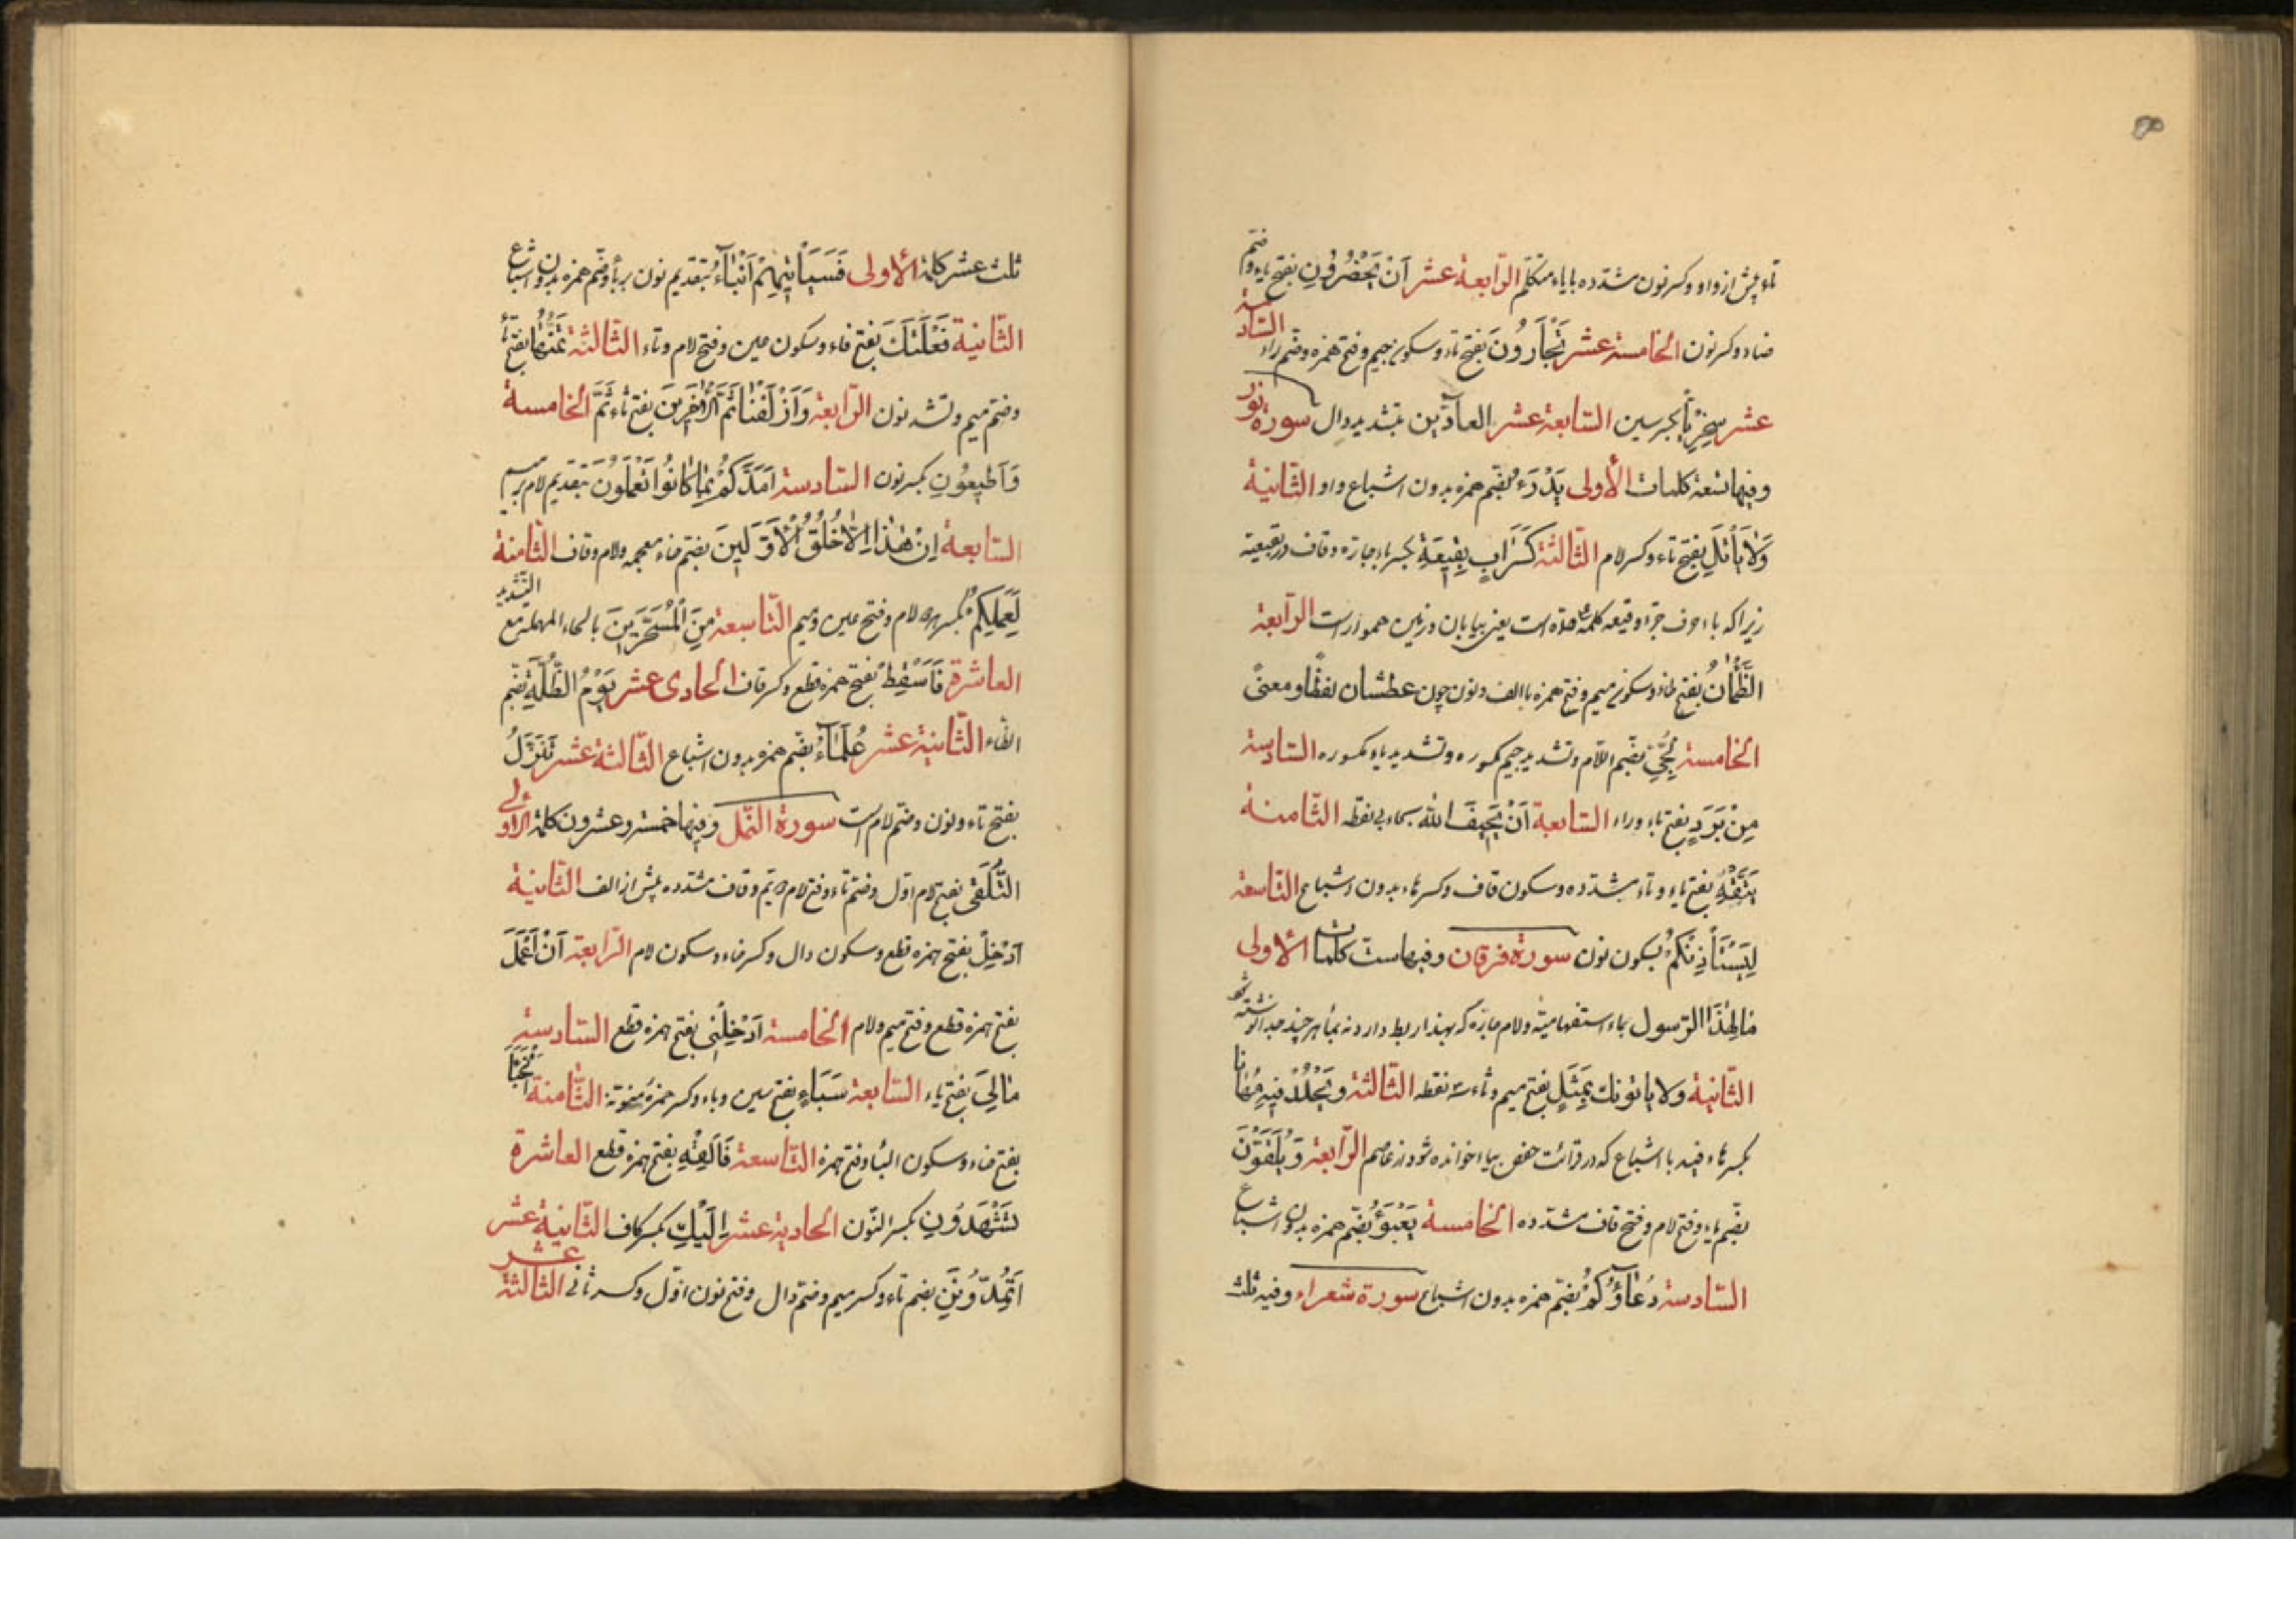 تاء پیش از واو و کسر نون مشدّده با یاء متکلّم الرّابعة عشر اَنْ یَحْضُرُونِ بفتح یاء و ضمّ
ضاد و کسر نون الخامسة عشر تَجْأَرُونَ بفتح تاء و سکون جیم و فتح همزه و ضمّ راء السّادسة
عشر سِخْرِیّاً بکسر سین السّابعة عشر العادّین بتشدید دال سورة نور
و فیها تسعة کلمات الأولی یَدْرَءُ بضّم همزه بدون اشباع واو الثّانیة
وَلا یَأْتَلِ بفتح تاء و کسر لام الثّالثة کَسَرَابٍ بِقِیعَةٍ بکسر باء جارّه و قاف در بقیعة
زیرا که باء حرف جرّ و قیعه کلمهٔ علیحده است یعنی بیابان و زمین هموار است الرّابعة
الظَّمْآنُ بفتح ظاء و سکون میم و فتح همزه با الف و نون چون عطشان لفظاً و معنیً
الخامسة لُجِّیٍّ بضّم اللّام و تشدید جیم مکسوره و تشدید یاء مکسوره السّادسة
مِنْ بَرَدٍ بفتح باء و راء السّابعة اَنْ یَحِیفَ اللّهُ بحاء بی نقطه الثّامنة
یَتَّقْهِ بفتح یاء و تاء مشدّده و سکون قاف و کسر هاء بدون اشباع التّاسعة
لِیَسْتَأْذِنْکُمْ بسکون نون سورة فرقان و فیها ست کلمات الأولی
مَا لِهٰذَا الرّسول بماء استفهامیّه و لام جارّه که بهذا ربط دارد نه بما هر چند جدا نوشته شد
الثّانیة ولا یاتونك بِمَثَلٍ بفتح میم و ثاء سه نقطه الثّالثة و یَخْلُدْ فِیهِ مُهَانا
بکسر هاء فیه با اشباع که در قرائت حفص بیاء خوانده شود از عاصم الرّابعة وَ یُلَقَّوْنَ
بضّم یاء و فتح لام و فتح قاف مشدّده الخامسة یَعْبَؤُ بضّم همزه بدون اشباع
السّادسة دُعَاؤُکُمْ بضّم همزه بدون اشباع سورة شعراء و فیه ثلث
ثلث عشر کلمة الأولی فَسَیَأْتِیهِمْ اَنْبَاءُ بتقدیم نون بر باء و ضّم همزه بدون اشباع
الثّانیة فَعْلَتَكَ بفتح فاء و سکون عین و فتح لام و تاء الثّالثة تَمُنُّهَا بفتح تاء
و ضّم میم و تشدید نون الرّابعة وَ اَزْلَفْنَا ثَمَّ الْاٰخَرِینَ بفتح ثاء ثَمَّ الخامسة
وَ اَطِیعُونِ بکسر نون السّادسة اَمَدَّکُمْ بِمَا کَانُوا تَعْلَمُونَ بتقدیم لام بر میم
السّابعة اِنْ هٰذَا اِلاّ خُلُقُ الْاَوَّلِینَ بضّم خاء معجمه و لام و قاف الثّامنة
لِعَمَلِکُمْ بکسر لام و فتح عین و میم التّاسعة مِنَ الْمُسَحَّرِینَ بالحاء المهملة مع التّشدید
العاشرة فَاَسْقِطْ بفتح همزه قطع و کسر قاف الحادی عشر یَوْمُ الظُّلَّةِ بضّم
الظاء الثّانیة عشر عُلَمَاءُ بضّم همزه بدون اشباع الثّالثة عشر تَنَزَّلُ
بفتح تاء و نون و ضّم لام است سورة النّمل و فیها خمسة و عشرون کلمة الأولی
التُّلَقّٰی بفتح لام اوّل و ضّم تاء و فتح لام دویّم و قاف مشدّده پیش از الف الثّانیة
اَدْخِلْ بفتح همزه قطع و سکون دال و کسر خاء و سکون لام الرّابعة اَنْ اَعْمَلَ
بفتح همزه قطع و فتح میم و لام الخامسة اَدْخِلْنِی بفتح همزه قطع السّادسة
مَا لِیَ بفتح یاء السّابعة سَبَاءٍ بفتح سین و باء و کسر همزه منوّنة الثّامنة الْخَبْاَ
بفتح خاء و سکون الباء و فتح همزه التّاسعة فَاَلْقِهْ بفتح همزه قطع العاشرة
تَشْهَدُونِ بکسر النّون الحادیة عشر اِلَیْكِ بکسر کاف الثّانیة عشر
اَتُمِدُّونَنِ بضم تاء و کسر میم و ضّم دال و فتح نون اوّل و کسر ثانی الثّالثة عشر